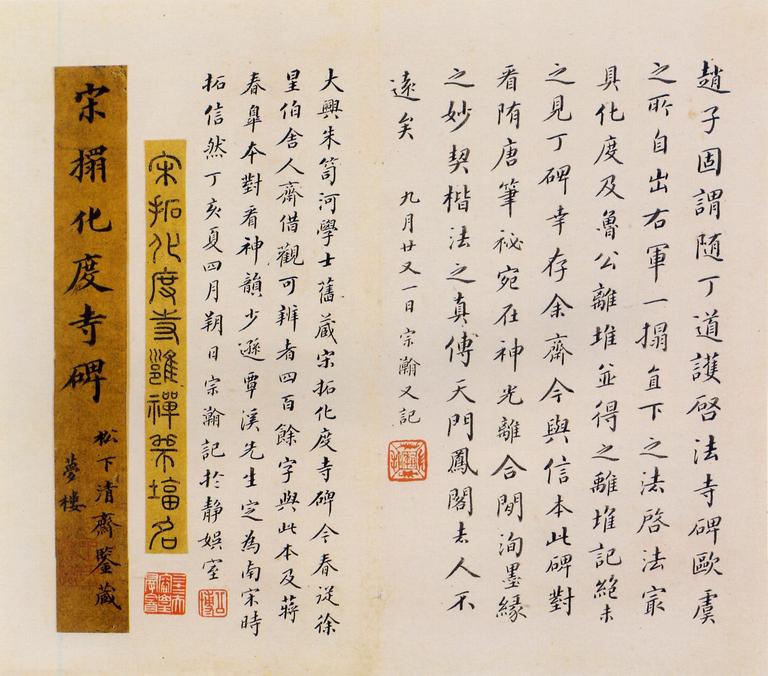 趙子固謂随丁道護啓法寺碑歐虞
之所自出右軍一搨直下之法啓法㝡
具化度及魯公離堆並得之離堆記絶未
之見丁碑幸存余齋今與信本此碑對
看隋唐筆祕宛在神光離合閒洵墨緣
之妙契楷法之真傳天門鳳閣去人不
遠矣 九月廿又一日宗瀚又記
大興朱笥河學士舊藏宋拓化度寺碑今春從徐
星伯舍人齋借觀可辨者四百餘字與此本及蔣
春皐本對看神韻少遜覃溪先生定為南宋時
拓信然丁亥夏四月朔日宗瀚記於静娛室
宋拓化度寺邕禪師塔名
宋搨化度寺碑
松下清齋鑒藏
夢樓